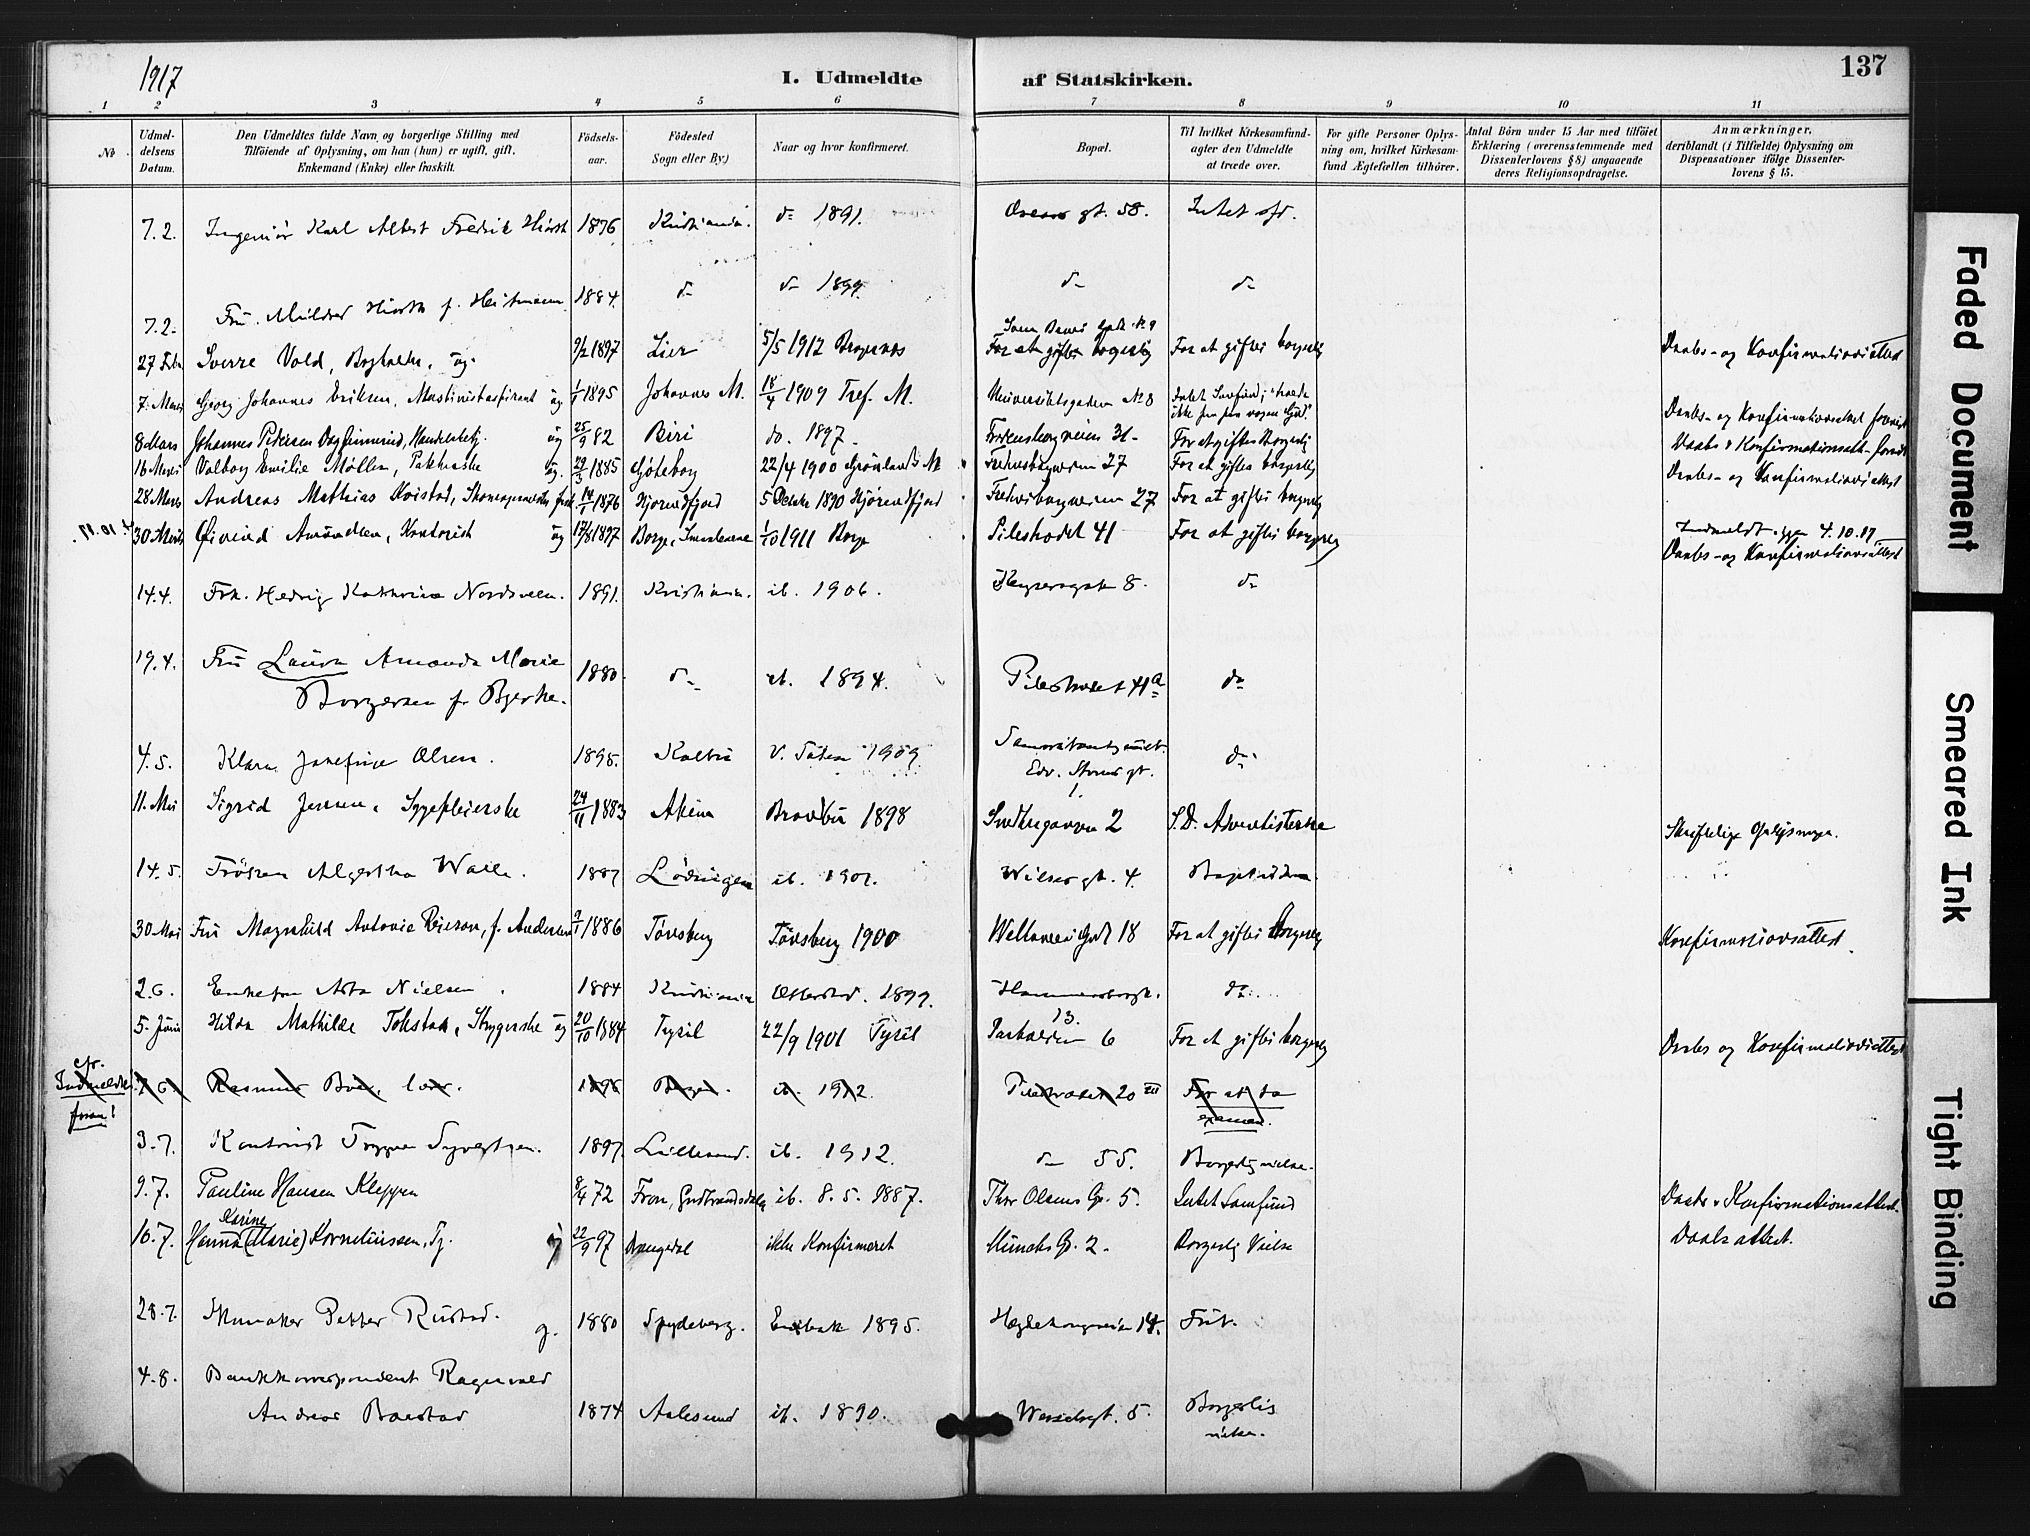 1917
I. Udmeldte af Statskirken.
137
1 2 3 4 5 6 7 8 9 10 11
No
Udmel-
delsens
Datum.
Den Udmeldtes fulde Navn og borgerlige Stilling med
Tilföiende af Oplysning, om han (hun) er ugift, gift,
Enkemand (Enke) eller fraskilt.
Födsels-
aar.
Födested
Sogn eller By)
Naar og hvor konfirmeret.
Bopæl.
Til hvilket Kirkesamfund-
agter den Udmeldte
at træde over.
For gifte Personer Oplys-
ning om, hvilket Kirkesam-
fund Ægtefællen tilhörer.
Antal Börn under 15 Aar med tilföiet
Erklæring (overensstemmende med
Dissenterlovens § 8) angaaende
deres Religionsopdragelse.
Anmærkninger,
deriblandt (i Tilfælde) Oplysning om
Dispensationer ifölge Dissenter-
lovens § 15.
7.2. Ingeniør Karl Albert Fredrik Hiorth 1876 Kristiania. do 1891. gt. 58. Intet sfd.
7.2. Fru Mildred Hiorth f. Heitmann 1884. do do 1899. do do
27 Febr Sverre Vold, ug. 9/2 1897 Lier 5/5 1912 Bragernes For at giftes borgerlig For at giftes borgerlig Daabs- og Konfirmationsattest
7. Mars Georg Johannes Eriksen, Maskinistaspirant ug 1/1 1895 Johannes M. 18/4 1909 Tref. M. Universitetsgaden No 8 Intet Samfund;
ikke
Daabs- og Konfirmationsattest forevist
8 Mars Johannes Pedersen Dagfinrud, Handelsbtj. ug 25/9 82 Biri do. 1897 31 For at giftes Borgerlig Daabs & Konfirmationsatt. forevist
16 Mars Valborg Emilie Møller, Pakkerske ug. 29/3 1885 Göteborg 22/4 1900 Grønlands M Fredensborgveien 27 For at giftes borgerlig Daabs- og Konfirmationsattest
28 Mars Andreas Mathias Kvistad, 14/1 1876 Hjørundfjord 5 Octobr 1890 Hjørundfjord Fredensborgveien 27 For at giftes borgerlig
4.10.17. 30 Mars Øivind Amundsen, Kontorist ug 17/8 1897 Borge, Smaalenene 1/10 1911 Borge Pilestrædet 41 For at giftes borgerlig Indmeldt igjen 4.10.17.
Daabs- og Konfirmationsattest
14.4. Frk. Hedvig Kathrine Nordsveen. 1891. Kristiania. ib. 1906. Keysersgate 8. do
19.4. Fru Laura Amanda Marie
Borgersen f. Bjerke. 1880. do ib. 1894. Pilestrædet 41a do
4.5. Klara Josefine Olsen. 1895. Kolbu V. Toten 1909
Edv. Storms gt.
1. do
11. Mai Sigrid Jensen, Sygepleierske 24/11 1883 Brandbu 1898 Smedsgangen 2 S.D. Adventisterne Skriftlige Oplysninger.
14.5. Frøken Algertha Walle. 1887 Lødingen ib. 1902. Wilses gt. 4. Baptisterne
30 Mai Fru Magnhild Antonie Reierson, f. Andersen 9/1 1886 Tønsberg Tønsberg 1900 Welhavens Gade 18 For at giftes borgerlig Konfirmationsattest
2.6. Enkefru Asta Nielsen 1884 Kristiania 1899. Hammersborgt.
13. do
5. Juni Hilda Mathilde Tokstad, Strygerske ug 20/10 1884 Trysil 22/9 1901 Trysil Parkveien 6 For at giftes borgerlig Daabs og Konfirmationsattest
cfr.
Indmeldte
foran!
7.6. Rasmus Bøe, lær. 1896 Bergen. ib. 1912. Pilestrædet 20 III For at ta
examen.
3.7. Kontorist Trygve Syvertsen. 1897. Lillesand. ib. 1912. do 55. Borgerlig vielse.
9.7. Pauline Hansen Kleppen 8/4 72 Fron, Gudbrandsdalen ib. 8.5.1887. Thv. Olsens G. 5. Intet Samfund Daabs & Konfirmationsattest.
16.7. Hanna Karine (Marie) Korneliussen, Tj. ug 22/9 97 Drangedal ikke Konfirmeret Munchs G. 2. Borgerlig Vielse Daabsattest.
28.7. Skomaker Petter Rustad. g. 1880 Spydeberg. Enebak 1895. Hegdehaugsveien 14. Frit.
4.8. Bankkorrespondent Ragnvald
Andreas Baestad 1874 Aalesund ib. 1890. Wesselsgt. 5. Borgerlig
vielse.
Faded Document
Smeared Ink
Tight Binding